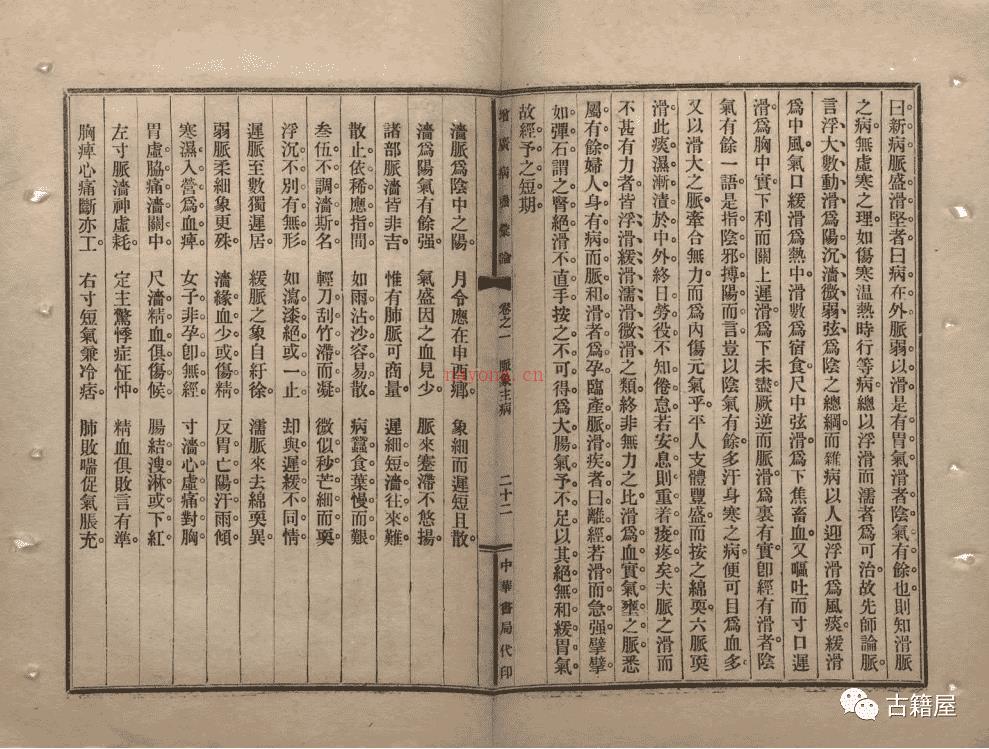 曰。新病脈盛滑堅者。曰病在外。脈弱以滑。是有胃氣。滑者陰氣有餘也。則知滑脈
之病。無虛寒之理。如傷寒溫熱時行等病。總以浮滑而濡者為可治。故先師論脈。
言浮大數動滑為陽。沉濇微弱弦為陰之總綱。而雜病以人迎浮滑為風痰。緩滑
為中風。氣口緩滑為熱中。滑數為宿食。尺中弦滑為下焦畜血。又嘔吐而寸口遲
滑為胸中實。下利而關上遲滑。為下未盡。厥逆而脈滑。為裏有實。卽經有滑者陰
氣有餘一語。是指陰邪搏陽而言。豈以陰氣有餘。多汗身寒之病。便可目為血多。
又以滑大之脈。牽合無力。而為內傷元氣乎。平人支體豐盛。而按之綿耎。六脈耎
滑。此痰濕漸漬於中外。終日勞役。不知倦怠。若安息則重着痠疼矣。夫脈之滑而
不甚有力者。皆浮滑緩滑濡滑微滑之類。終非無力之比。滑為血實氣壅之脈。悉
屬有餘。婦人身有病而脈和滑者為孕。臨產脈滑疾者曰離經。若滑而急强。擘擘
如彈石。謂之腎絕。滑不直手。按之不可得。為大腸氣予不足。以其絕無和緩胃氣。
故經予之短期。
增廣病機彙論
卷之一 脈象主病
二十二
中華書局代印
濇脈為陰中之陽。 月令應在申酉鄉。 象細而遲短且散。
濇為陽氣有餘强。 氣盛因之血見少。 脈來蹇滯不悠揚。
諸部脈濇皆非吉。 惟有肺脈可商量。 遲細短濇往來難。
散止依稀應指間。 如雨沾沙容易散。 病蠶食葉慢而艱。
叁伍不調濇斯名。 輕刀刮竹滯而凝。 微似秒芒細而耎。
浮沉不別有無形。 如瀉漆絕或一止。 却與遲緩不同情。
遲脈至數獨遲居。 緩脈之象自紆徐。 濡脈來去綿耎異。
弱脈柔細象更殊。 濇緣血少或傷精。 反胃亡陽汗雨傾。
寒濕入營為血痺。 女子非孕卽無經。 寸濇心虛痛對胸。
胃虛脇痛濇關中。 尺濇精血俱傷候。 腸結溲淋或下紅。
左寸脈濇神虛耗。 定主驚悸症怔忡。 精血俱敗言有準。
胸痺心痛斷亦工。 右寸短氣兼冷痞。 肺敗喘促氣脹充。
nayona.cn
古籍屋